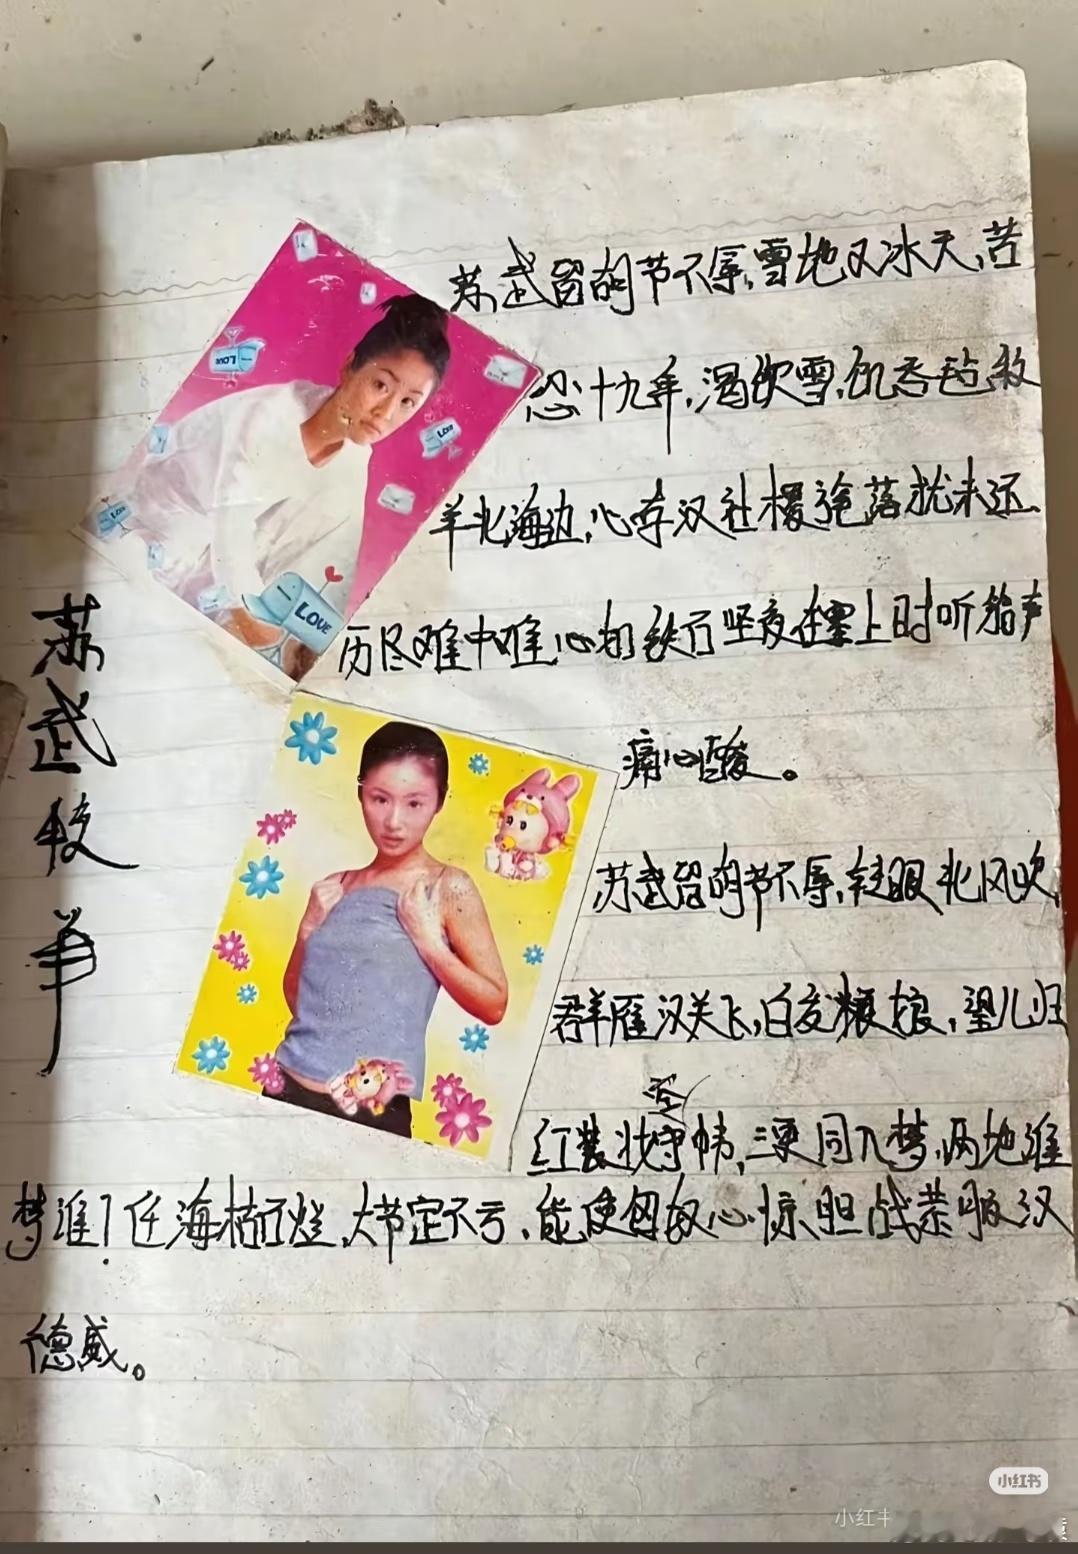 苏武牧羊
苏武留胡节不辱,雪地又冰天,苦
忍十九年,渴饮雪,饥吞毡,牧
羊北海边,心存汉社稷旄落犹未还、
历尽难中难,心如铁石坚夜在塞上时听笳声
痛心酸。
苏武留胡节不辱,转眼北风吹,
群雁汉关飞,白发娘,望儿归
红装守空帏,三更同入梦,两地谁
梦谁?任海枯石烂,大节定不亏,能使匈奴心惊胆战恭服汉
德威。
LOVE
LOVE
LOVE
LOVE
小红书
小红书